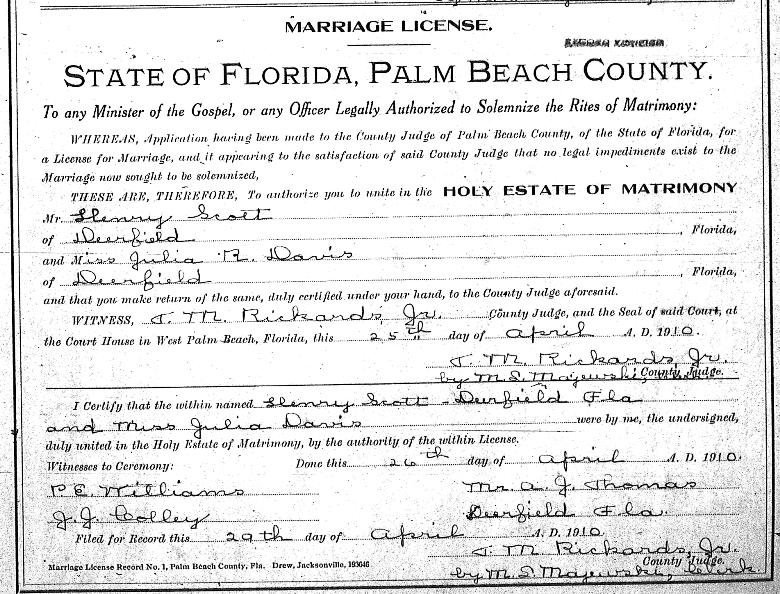 MARRIAGE LICENSE.
STATE OF FLORIDA, PALM BEACH COUNTY.
To any Minister of the Gospel, or any Officer Legally Authorized to Solemnize the Rites of Matrimony:
WHEREAS, Application having been made to the County Judge of Palm Beach County, of the State of Florida, for
a License for Marriage, and it appearing to the satisfaction of said County Judge that no legal impediments exist to the
Marriage now sought to be solemnized,
THESE ARE, THEREFORE, To authorize you to unite in the HOLY ESTATE OF MATRIMONY
Mr. Henry Scott
of Deerfield , Florida,
and Miss Julia R. Davis
of Deerfield , Florida,
and that you make return of the same, duly certified under your hand, to the County Judge aforesaid.
WITNESS, J. M. Rickards, Jr. County Judge, and the Seal of said Court, at
the Court House in West Palm Beach, Florida, this 25th day of April A. D. 1910.
J. M. Rickards, Jr.
by M. S. Majewski, County Judge.
I Certify that the within named Henry Scott - Deerfield Fla
and Miss Julia Davis were by me, the undersigned,
duly united in the Holy Estate of Matrimony, by the authority of the within License.
Witnesses to Ceremony: Done this 26th day of April A. D. 1910.
P. E. Williams Mr. A. J. Thomas
J. J. Colley Deerfield Fla.
Filed for Record this 29th day of April A. D. 1910.
J. M. Rickards, Jr.
County Judge.
by M. S. Majewski, Clerk.
Marriage License Record No. 1, Palm Beach County, Fla. Drew, Jacksonville, 193646